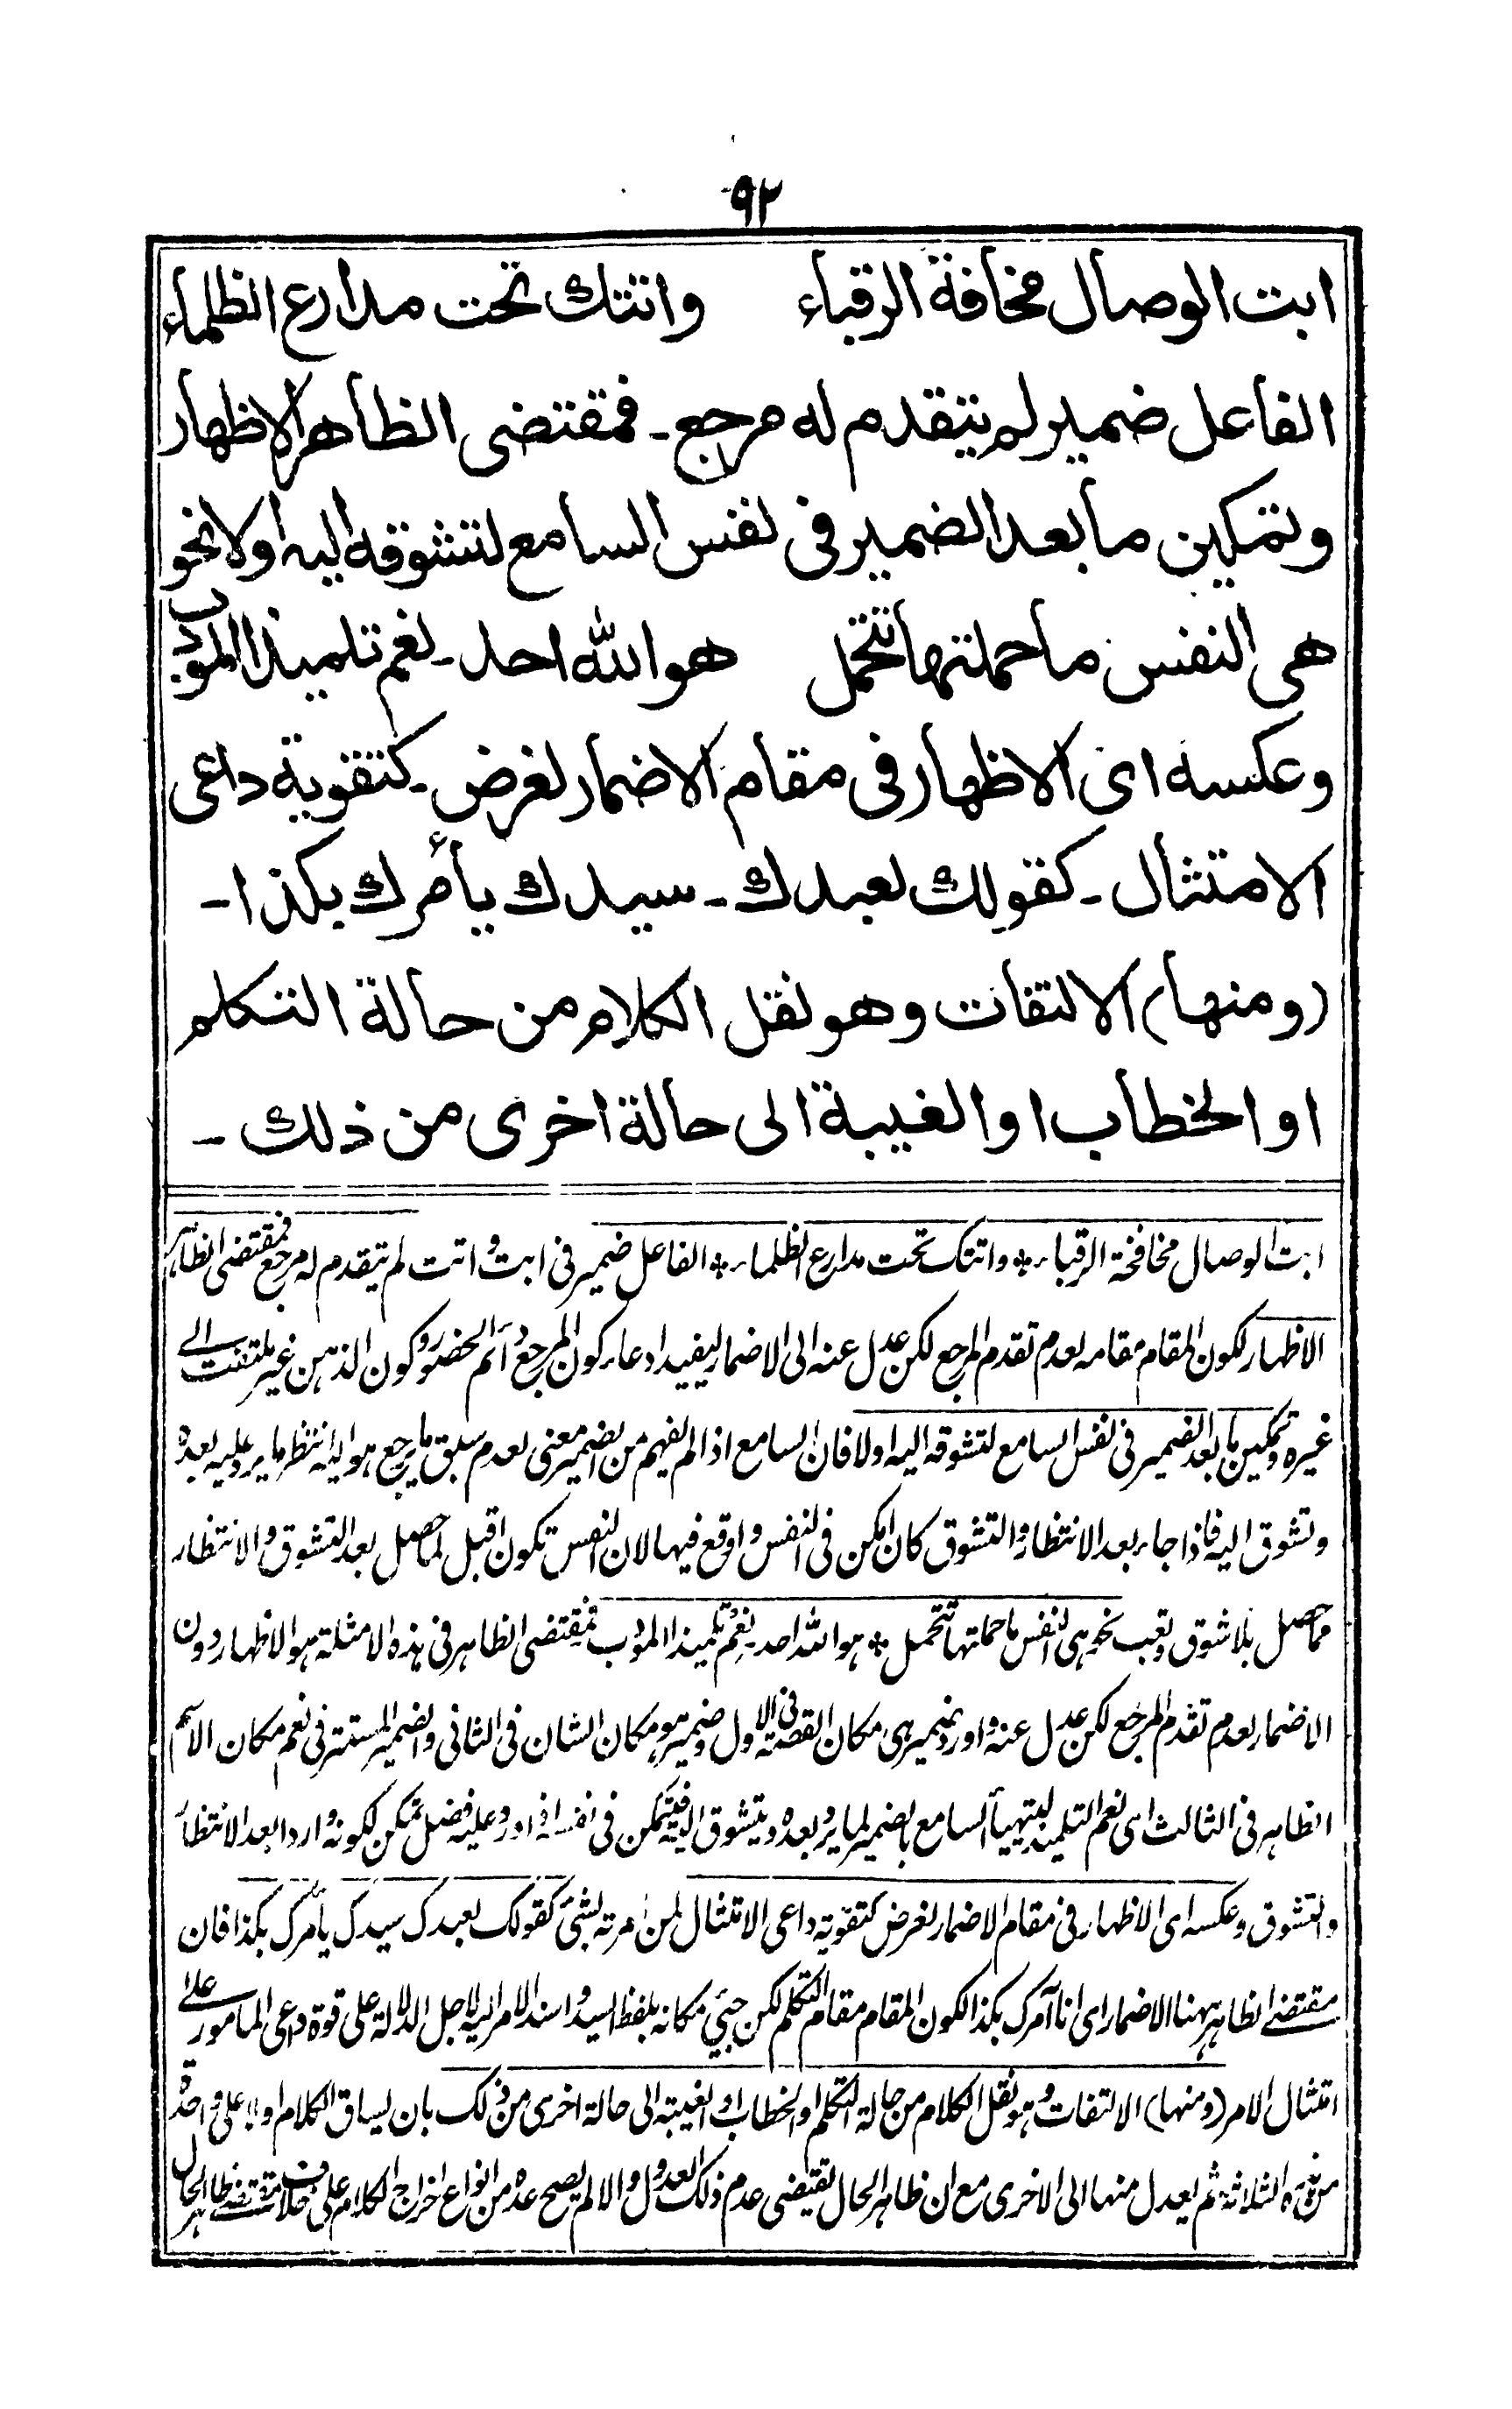 ٩٢
ابت الوصال مخافة الرقباء واتتك تحت مدارع الظلماء
الفاعل ضمير لم يتقدم له مرجع۔ فمقتضى الظاهر الاظهار
وتمكين ما بعد الضمير فى نفس السامع لتشوقه اليه اولا نحو
هى النفس ما حملتها تتحمل هو الله احد۔ نعم تلميذا المؤدب
وعكسه اى الاظهار فى مقام الاضمار لغرض۔ كتقوية داعى
الامتثال۔ كقولك لعبدك۔ سيدك يأمرك بكذا۔
(ومنها) الالتفات وهو نقل الكلام من حالة التكلم
او الخطاب او الغيبة الى حالة اخرى من ذلك۔
ابت الوصال مخافة الرقباء * واتتك تحت مدارع الظلماء * الفاعل ضمير فى ابت و اتت لم يتقدم له مرجع فمقتضى الظاهر
الاظهار لكون المقام مقامه لعدم تقدم المرجع لكن عدل عنه الى الاضمار ليفيد ادعاء كون المرجع دائم الحضور و كون الذهن غير ملتفت الے
غيره وتمكين ما بعد الضمير فى نفس السامع لتشوقه اليه اولا فان السامع اذا لم يفهم من الضمير معنى لعدم سبق ما يرجع هو اليه انتظر ما يرد عليه بعده
وتشوق اليه فاذا جاء بعد الانتظار والتشوق كان امكن فى النفس و اوقع فيها لان النفس تكون اقبل لما حصل بعد التشوق و الانتظار
مما حصل بلا شوق وتعب نحو هى النفس ما حملتها تتحمل * هو الله احد نعم تلميذا المؤدب فمقتضى الظاهر فى هذه الامثلة هو الاظهار دون
الاضمار لعدم تقدم المرجع لكن عدل عنه و اورد ضمير هى مكان القصة فى الاول وضمير هو مكان الشان فى الثانى والضمير المستتر فى نعم مكان الاسم
الظاهر فى الثالث اى نعم التلميذ ليتهيأ السامع بالضمير لما يرد بعده و يتشوق اليه فيتمكن فى نفسه اذا ورد عليه فضل تمكن لكونه واردا بعد الانتظار
والتشوق وعكسه اى الاظهار فى مقام الاضمار لغرض كتقوية داعى الامتثال لمن امرته بشئ كقولك لعبدك سيدك يأمرك بكذا فان
مقتضے الظاهر ههنا الاضمار اى انا آمرك بكذا لكون المقام مقام التكلم لكن جيئ مكانه بلفظ السيد و اسند الامر اليه لاجل الدلالة على قوة داعى المامور علے
امتثال الامر (ومنها) الالتفات وهو نقل الكلام من حالة التكلم او الخطاب او الغيبة الى حالة اخرى من ذلك بان يساق الكلام اولا على واحدة
من هذه الثلاثة ثم يعدل منها الى الاخرى مع ان ظاهر الحال يقتضى عدم ذلك العدول والا لم يصح عده من انواع اخراج الكلام على خلاف مقتضے ظاهر الحال